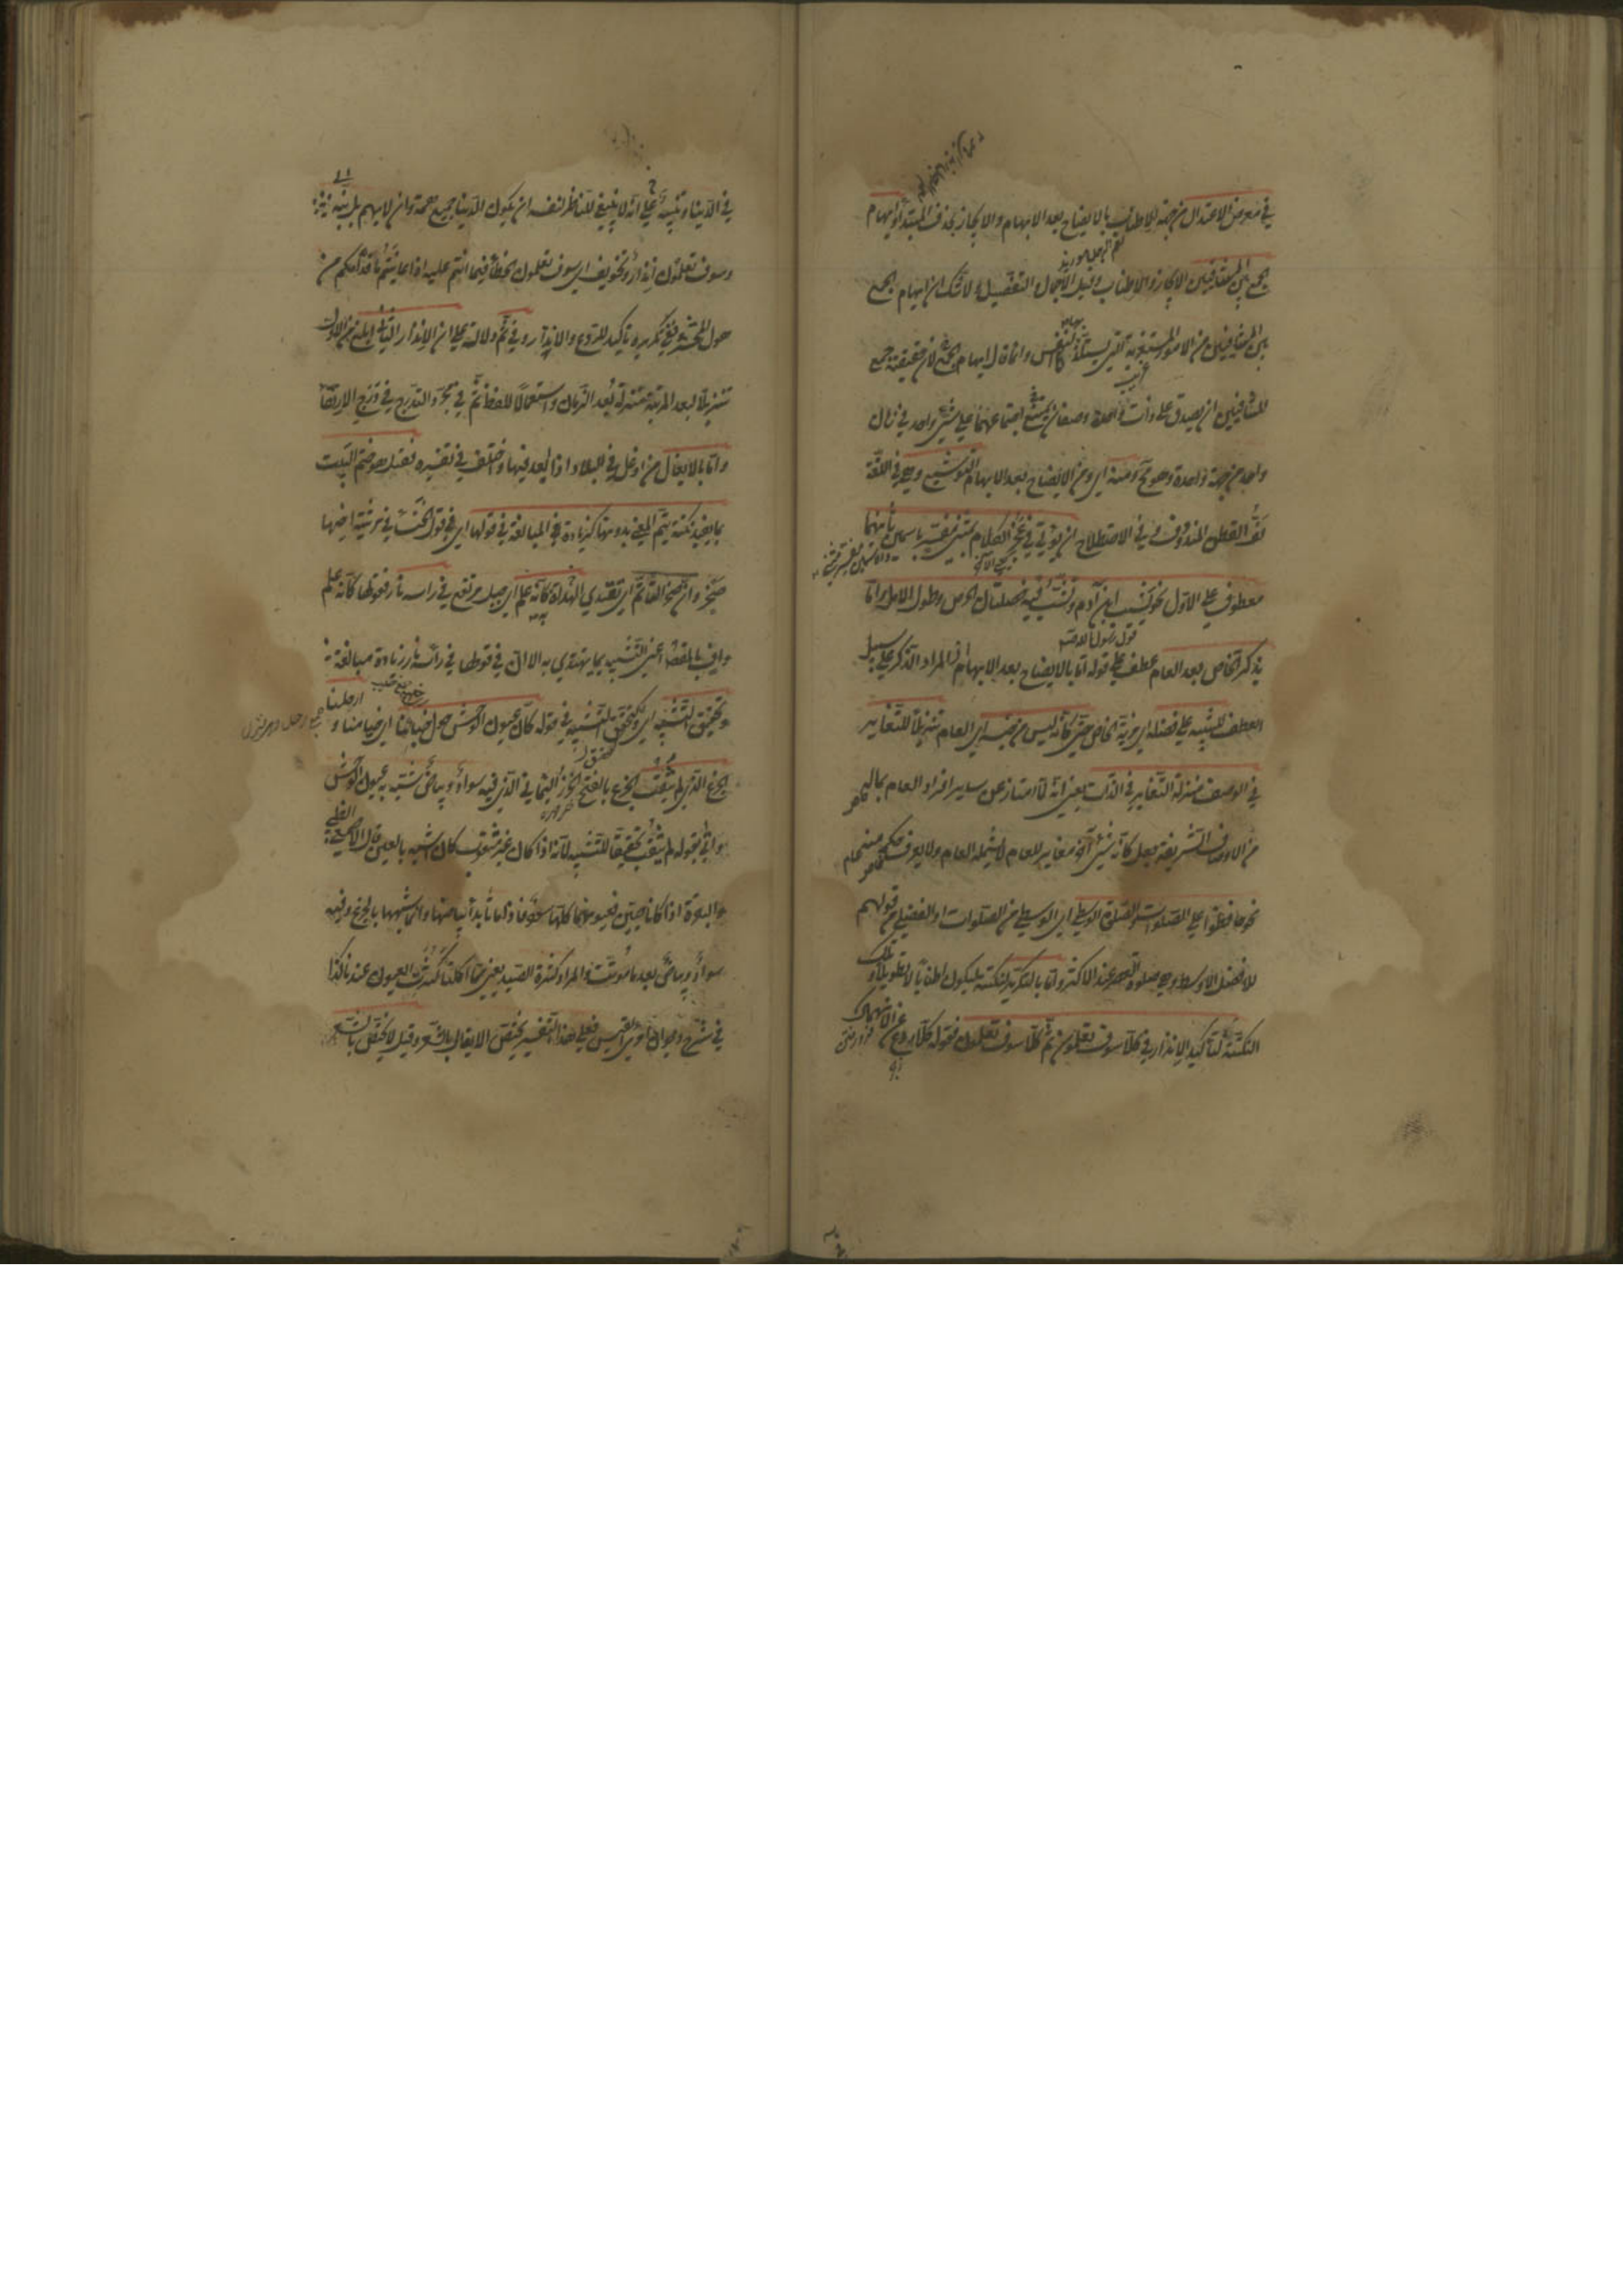 في معرض الاعتدال من جهة الاطناب بالايضاح بعد الابهام والايجاز بحذف المبتدأ وايهام
الجمع بين المتنافيين الايجاز والاطناب وقيل الاجمال والتفصيل ولا شك ان ايهام الجمع
بين المتنافيين من الامور المستغربة التي يستلذ بها النفس وانما قال ايهام الجمع لان حقيقة جمع
المتنافيين ان يصدق على ذات واحدة وصفان يمتنع اجتماعهما على شيء واحد في زمان
واحد من جهة واحدة وهو مح ومنه اي ومن الايضاح بعد الابهام التوشيع وهو في اللغة
لف القطن المندوف وفي الاصطلاح ان يؤتى في عجز الكلام بمثنى مفسر باسمين ثانيهما
معطوف على الاول نحو يشيب ابن آدم وتشب فيه خصلتان الحرص وطول الامل واما
بذكر الخاص بعد العام عطف على قوله اما بالايضاح بعد الابهام والمراد الذكر على سبيل
العطف للتنبيه على فضله اي مزية الخاص حتى كانه ليس من جنسه اي العام تنزيلا للتغاير
في الوصف منزلة التغاير في الذات يعني انه لما امتاز عن ساير افراد العام بماله
من الاوصاف الشريفة جعل كانه شيء آخر مغاير للعام لا يشمله العام ولا يعرف حكمه منه
نحو حافظوا على الصلوات والصلوة الوسطى اي الوسطى من الصلوات او الفضلى من قولهم
للافضل الاوسط وهي صلوة العصر عند الاكثر واما بالتكرير لنكتة ليكون اطنابا لا تطويلا وتلك
النكتة كتأكيد الانذار في كلا سوف تعلمون ثم كلا سوف تعلمون فقوله كلا ردع عن الانهماك
في الدنيا وتنبيه على انه لا ينبغي للناظر لنفسه ان يكون الدنيا جميع همه وان لا يهتم بدينه
وسوف تعلمون انذار وتخويف اي سوف تعلمون الخطأ فيما انتم عليه اذا عاينتم ما قدامكم من
هول المحشر وفي تكريره تأكيد للردع والانذار وفي ثم دلالة على ان الانذار الثاني ابلغ من الاول
تنزيلا لبعد المرتبة منزلة بعد الزمان واستعمالا للفظ ثم في مجرد التدرج في درج الارتقاء
واما بالايغال من اوغل في البلاد اذا ابعد فيها واختلف في تفسيره فقيل هو ختم البيت
بما يفيد نكتة يتم المعنى بدونها كزيادة المبالغة في قولها اي في قول الخنساء في مرثية اخيها
صخر وان صخرا لتأتم اي تقتدي الهداة به كانه علم اي جبل مرتفع في راسه نار فقولها كانه علم
واف بالمقصود اعني التشبيه بما يهتدى به الا ان في قولها في رأسه نار زيادة مبالغة
وتحقيق التشبيه اي وكتحقيق التشبيه في قوله كأن عيون الوحش حول خبائنا اي خيامنا وارحلنا
الجزع الذي لم يثقب الجزع بالفتح الخرز اليماني الذي فيه سواد وبياض شبه به عيون الوحش
واتى بقوله لم يثقب تحقيقا للتشبيه لانه اذا كان غير مثقوب كان اشبه بالعين قال الاصمعي الظبي
والبقرة اذا كانا حيين فعيونهما كلها سواد فاذا ماتا بدا بياضها وانما شبهها بالجزع وفيه
سواد وبياض بعد ما موتت والمراد كثرة الصيد يعني مما اكلنا كثرت العيون عندنا كذا
في شرح ديوان امرئ القيس فعلى هذا التفسير يختص الايغال بالشعر وقيل لا يختص بالشعر